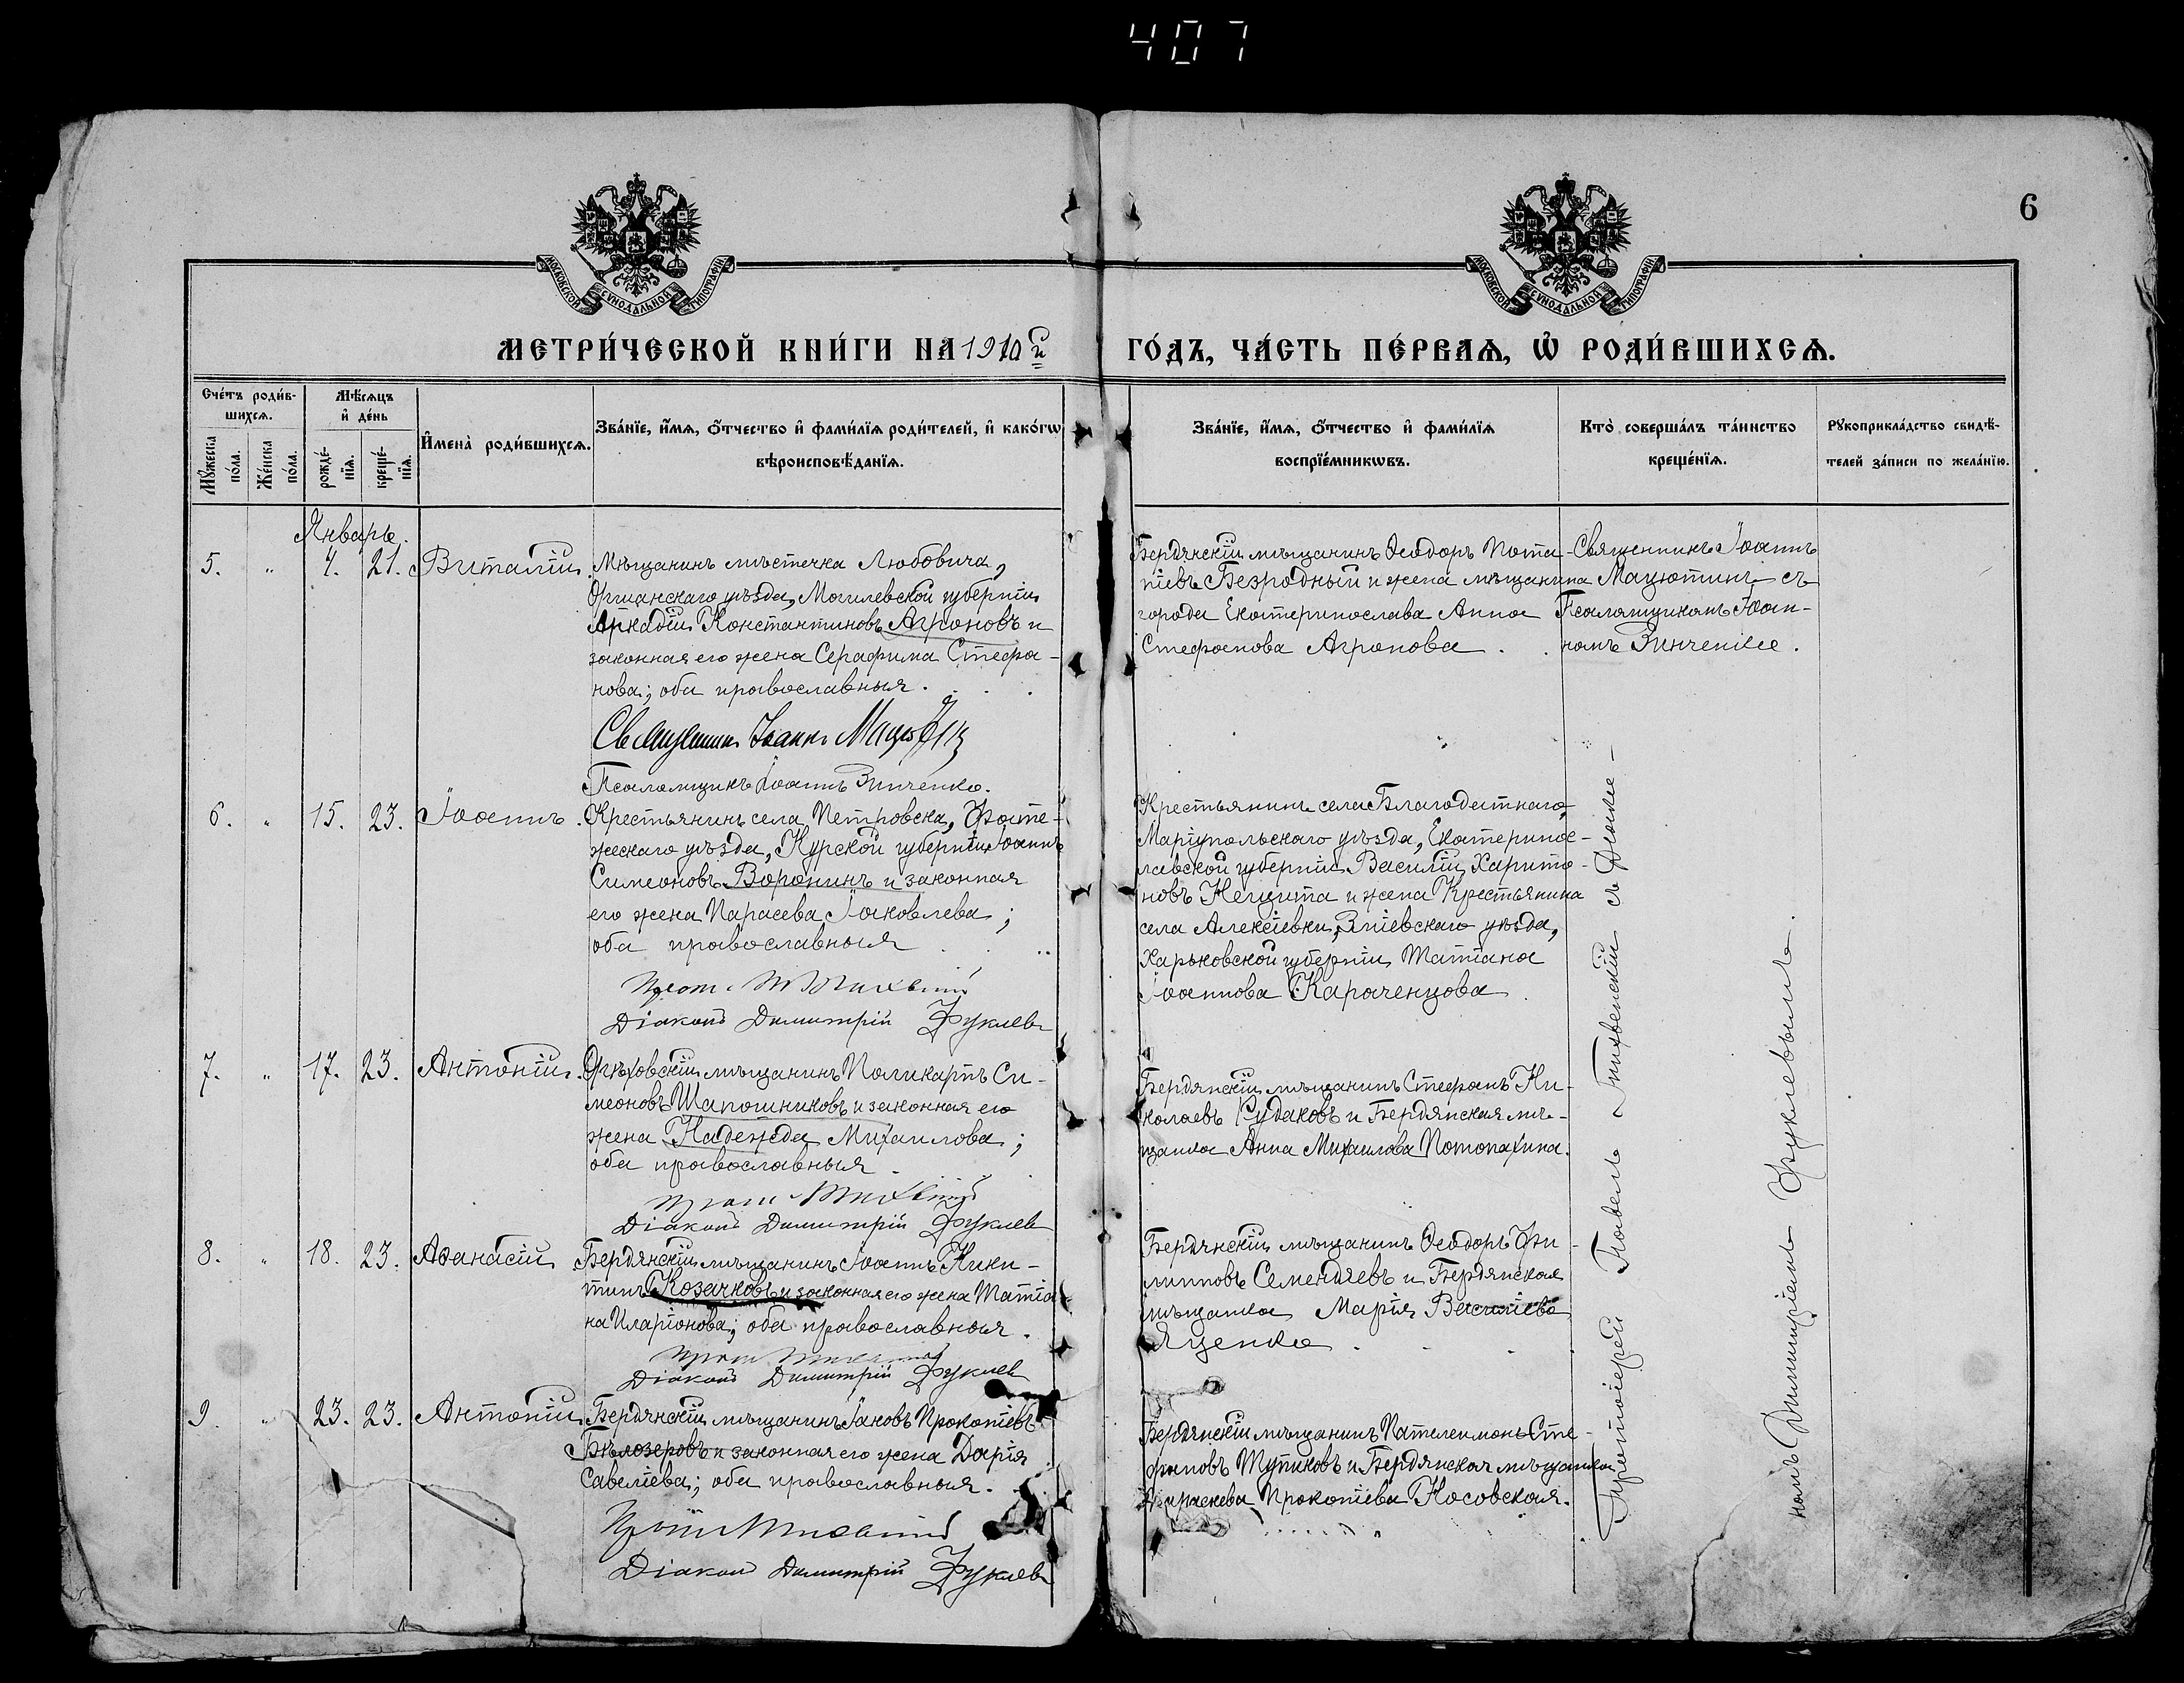 407
6
МОСКОВСКОЙ СѴНОДАЛЬНОЙ ТИПОГРАФІИ
МОСКОВСКОЙ СѴНОДАЛЬНОЙ ТИПОГРАФІИ
МЕТРИ́ЧЕСКОЙ КНИ́ГИ НА 1910й ГО́ДЪ, ЧА́СТЬ ПЕ́РВАѦ, Ѡ҆ РОДИ́ВШИХСѦ.
Сче́тъ роди́в-
шихсѧ.
Мꙋ́жеска по́ла.
Же́нска по́ла.
Мѣ́сѧцъ
и҆ де́нь
рожде́-
нїѧ.
креще́-
нїѧ.
И҆мена̀ роди́вшихсѧ.
Зва́нїе, и҆́мѧ, ѻ҆́тчество и҆ фами́лїѧ роди́телей, и҆ како́гѡ
вѣроисповѣ́данїѧ.
Зва́нїе, и҆́мѧ, ѻ҆́тчество и҆ фами́лїѧ
воспрїе́мникѡвъ.
Кто̀ соверша́лъ та́инство
креще́нїѧ.
Рꙋкоприкла́дство свидѣ́-
телей за́писи по жела́нїю.
Январь.
5. " 4. 21. Виталій.
Мѣщанинъ мѣстечка Любовича,
Оршанскаго уѣзда, Могилевской губерніи
Аркадій Константиновъ Агроновъ и
законная его жена Серафима Стефа-
нова; оба православныя.
Священникъ Іоаннъ Мацютинъ
Псаломщикъ Іоаннъ Зинченко.
Бердянскій мѣщанинъ Ѳеодоръ Пота-
піевъ Безродный и жена мѣщанина
города Екатеринослава Анна
Стефанова Агронова.
Священникъ Іоаннъ
Мацютинъ съ
Псаломщикомъ Іоан-
номъ Зинченко.
6. " 15. 23. Іоаннъ.
Крестьянинъ села Петровска, Фате-
жскаго уѣзда, Курской губерніи Іоаннъ
Симеоновъ Воронинъ и законная
его жена Парасева Іаковлева;
оба православныя
Діаконъ Димитрій Фуклевъ
Крестьянинъ села Благодатнаго,
Маріупольскаго уѣзда, Екатеринос-
лавской губерніи Василій Харито-
новъ Нещита и жена Крестьянина
села Алексіевки, Зміевскаго уѣзда,
Харьковской губерніи Татіана
Іоаннова Караченцова.
7. " 17. 23. Антоній.
Орѣховскій мѣщанинъ Поликарпъ Си-
меоновъ Шапошниковъ и законная его
жена Надежда Михаилова;
оба православныя.
Діаконъ Димитрій Фуклевъ
Бердянскій мѣщанинъ Стефанъ Ни-
колаевъ Рудаковъ и Бердянская мѣ-
щанка Анна Михаилова Потопахина.
8. " 18. 23. Аѳанасій
Бердянскій мѣщанинъ Іоаннъ Ники-
тинъ Козачковъ и законная его жена Татіа
на Иларіонова; оба православныя.
Діаконъ Димитрій Фуклевъ
Бердянскій мѣщанинъ Ѳеодоръ Фи-
липповъ Семендяевъ и Бердянская
мѣщанка Марія Василіева
Яценко
9. " 23. 23. Антоній.
Бердянскій мѣщанинъ Іаковъ Прокопіевъ
Бѣлозеровъ и законная его жена Дарія
Савеліева; оба православныя.
Діаконъ Димитрій Фуклевъ
Бердянскій мѣщанинъ Пателеимонъ Сте-
фановъ Тупиковъ и Бердянская мѣщанка
Параскева Прокопіева Носовская.
Протоіерей Павелъ Тихвенскій съ Діако-
номъ Димитріемъ Фуклевымъ.